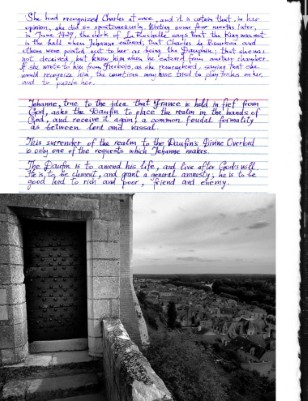 She had recognised Charles at once, and it is certain that in her
opinion, she did so spontaneously. Writing some four months later,
in June 1429, the clerk of La Rochelle says that the King was not
in the hall when Jehanne entered, that Charles de Bourbon and
others were pointed out to her as being the Dauphin; that she was
not deceived, but knew him when he entered from another chamber.
If she wrote to him from Fierbois, as she remembered, saying that she
would recognize him, the courtiers may have tried to play tricks on her,
and to puzzle her.
Jehanne, true to the idea that France is held in fief from
God, asks the Dauphin to place the realm in the hands of
God, and receive it again, a common feudal formality
as between lord and vassal.
This surrender of the realm to the Dauphin's Divine Overlord
is only one of the requests which Jehanne makes.
The Dauphin is to amend his life, and live after God's will
He is to be clement, and grant a general amnesty; he is to be
good lord to rich and poor, friend and enemy.